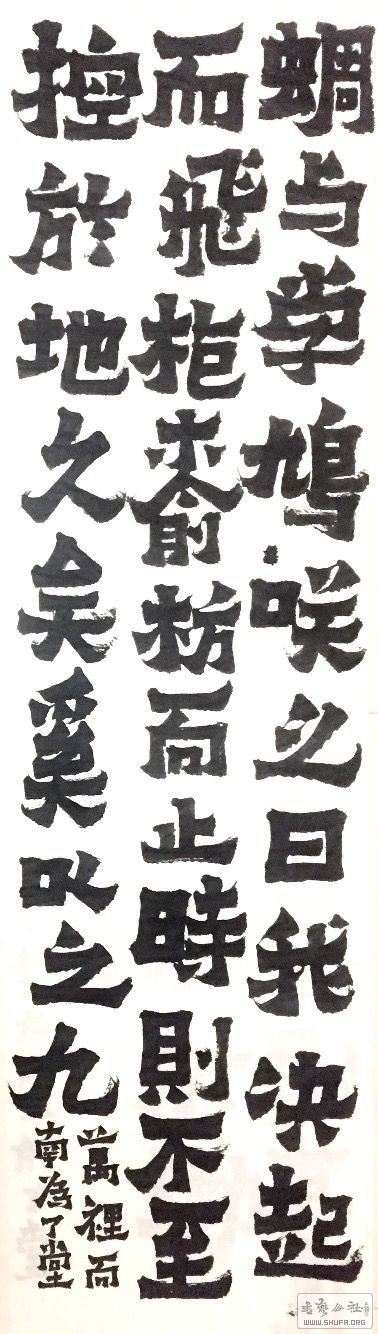 蜩与学鳩咲之曰我决起
而飛柜榆枋而止時則不至
控於地久矣奚以之九
萬裡而
南為了堂
書藝公社
WWW.SHUFA.ORG